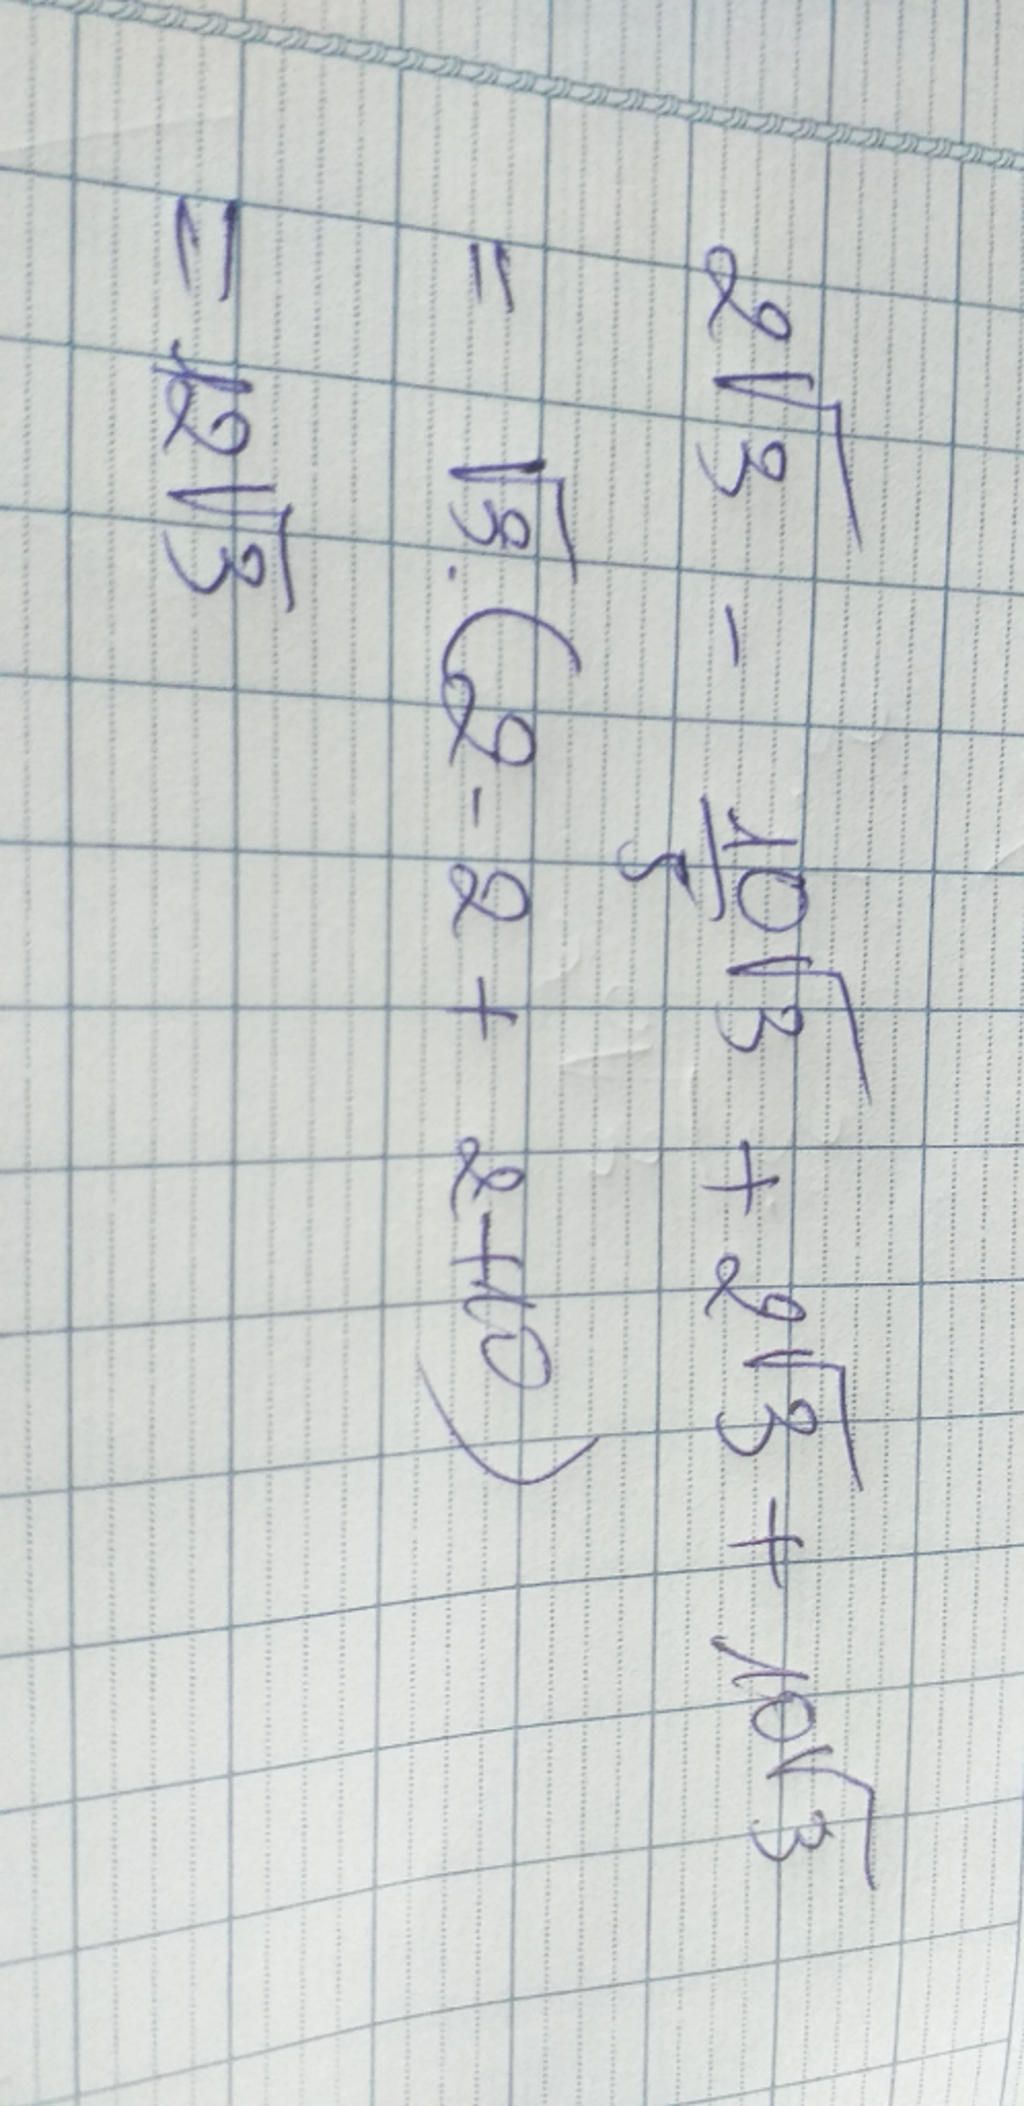 2√3 - 10/5 √3 + 2√3 + 10√3
= √3. (2 - 2 + 2 + 10)
= 12√3